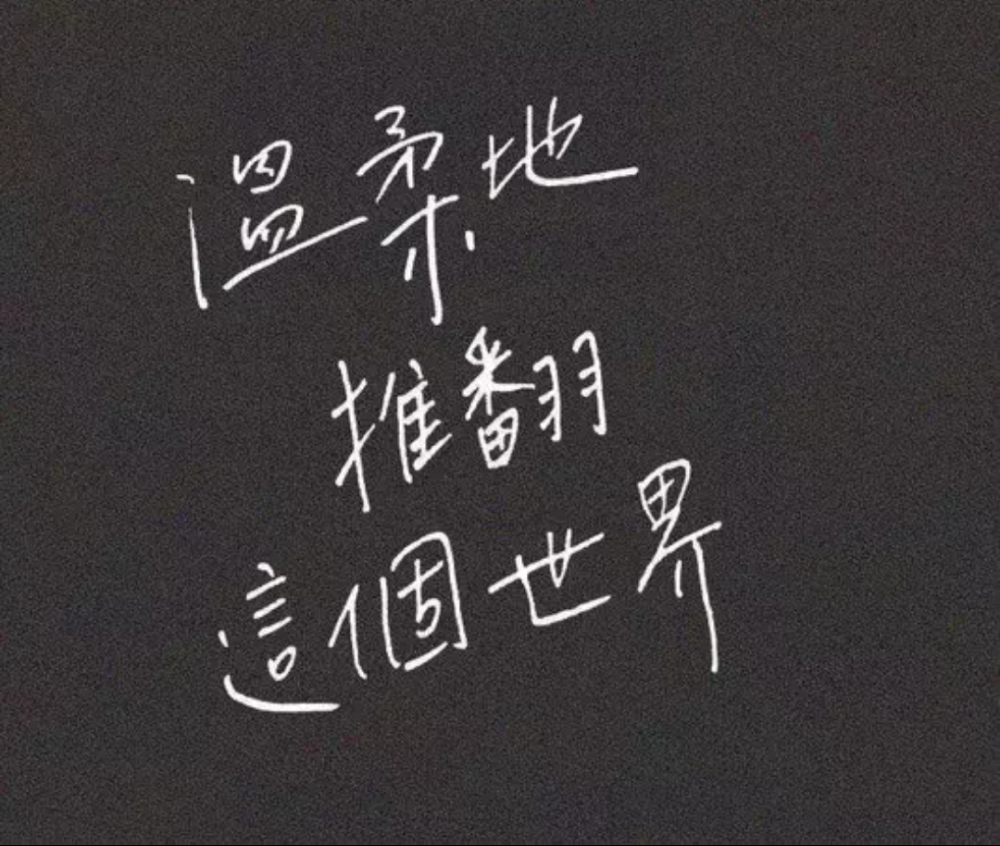 溫柔地
推翻
這個世界